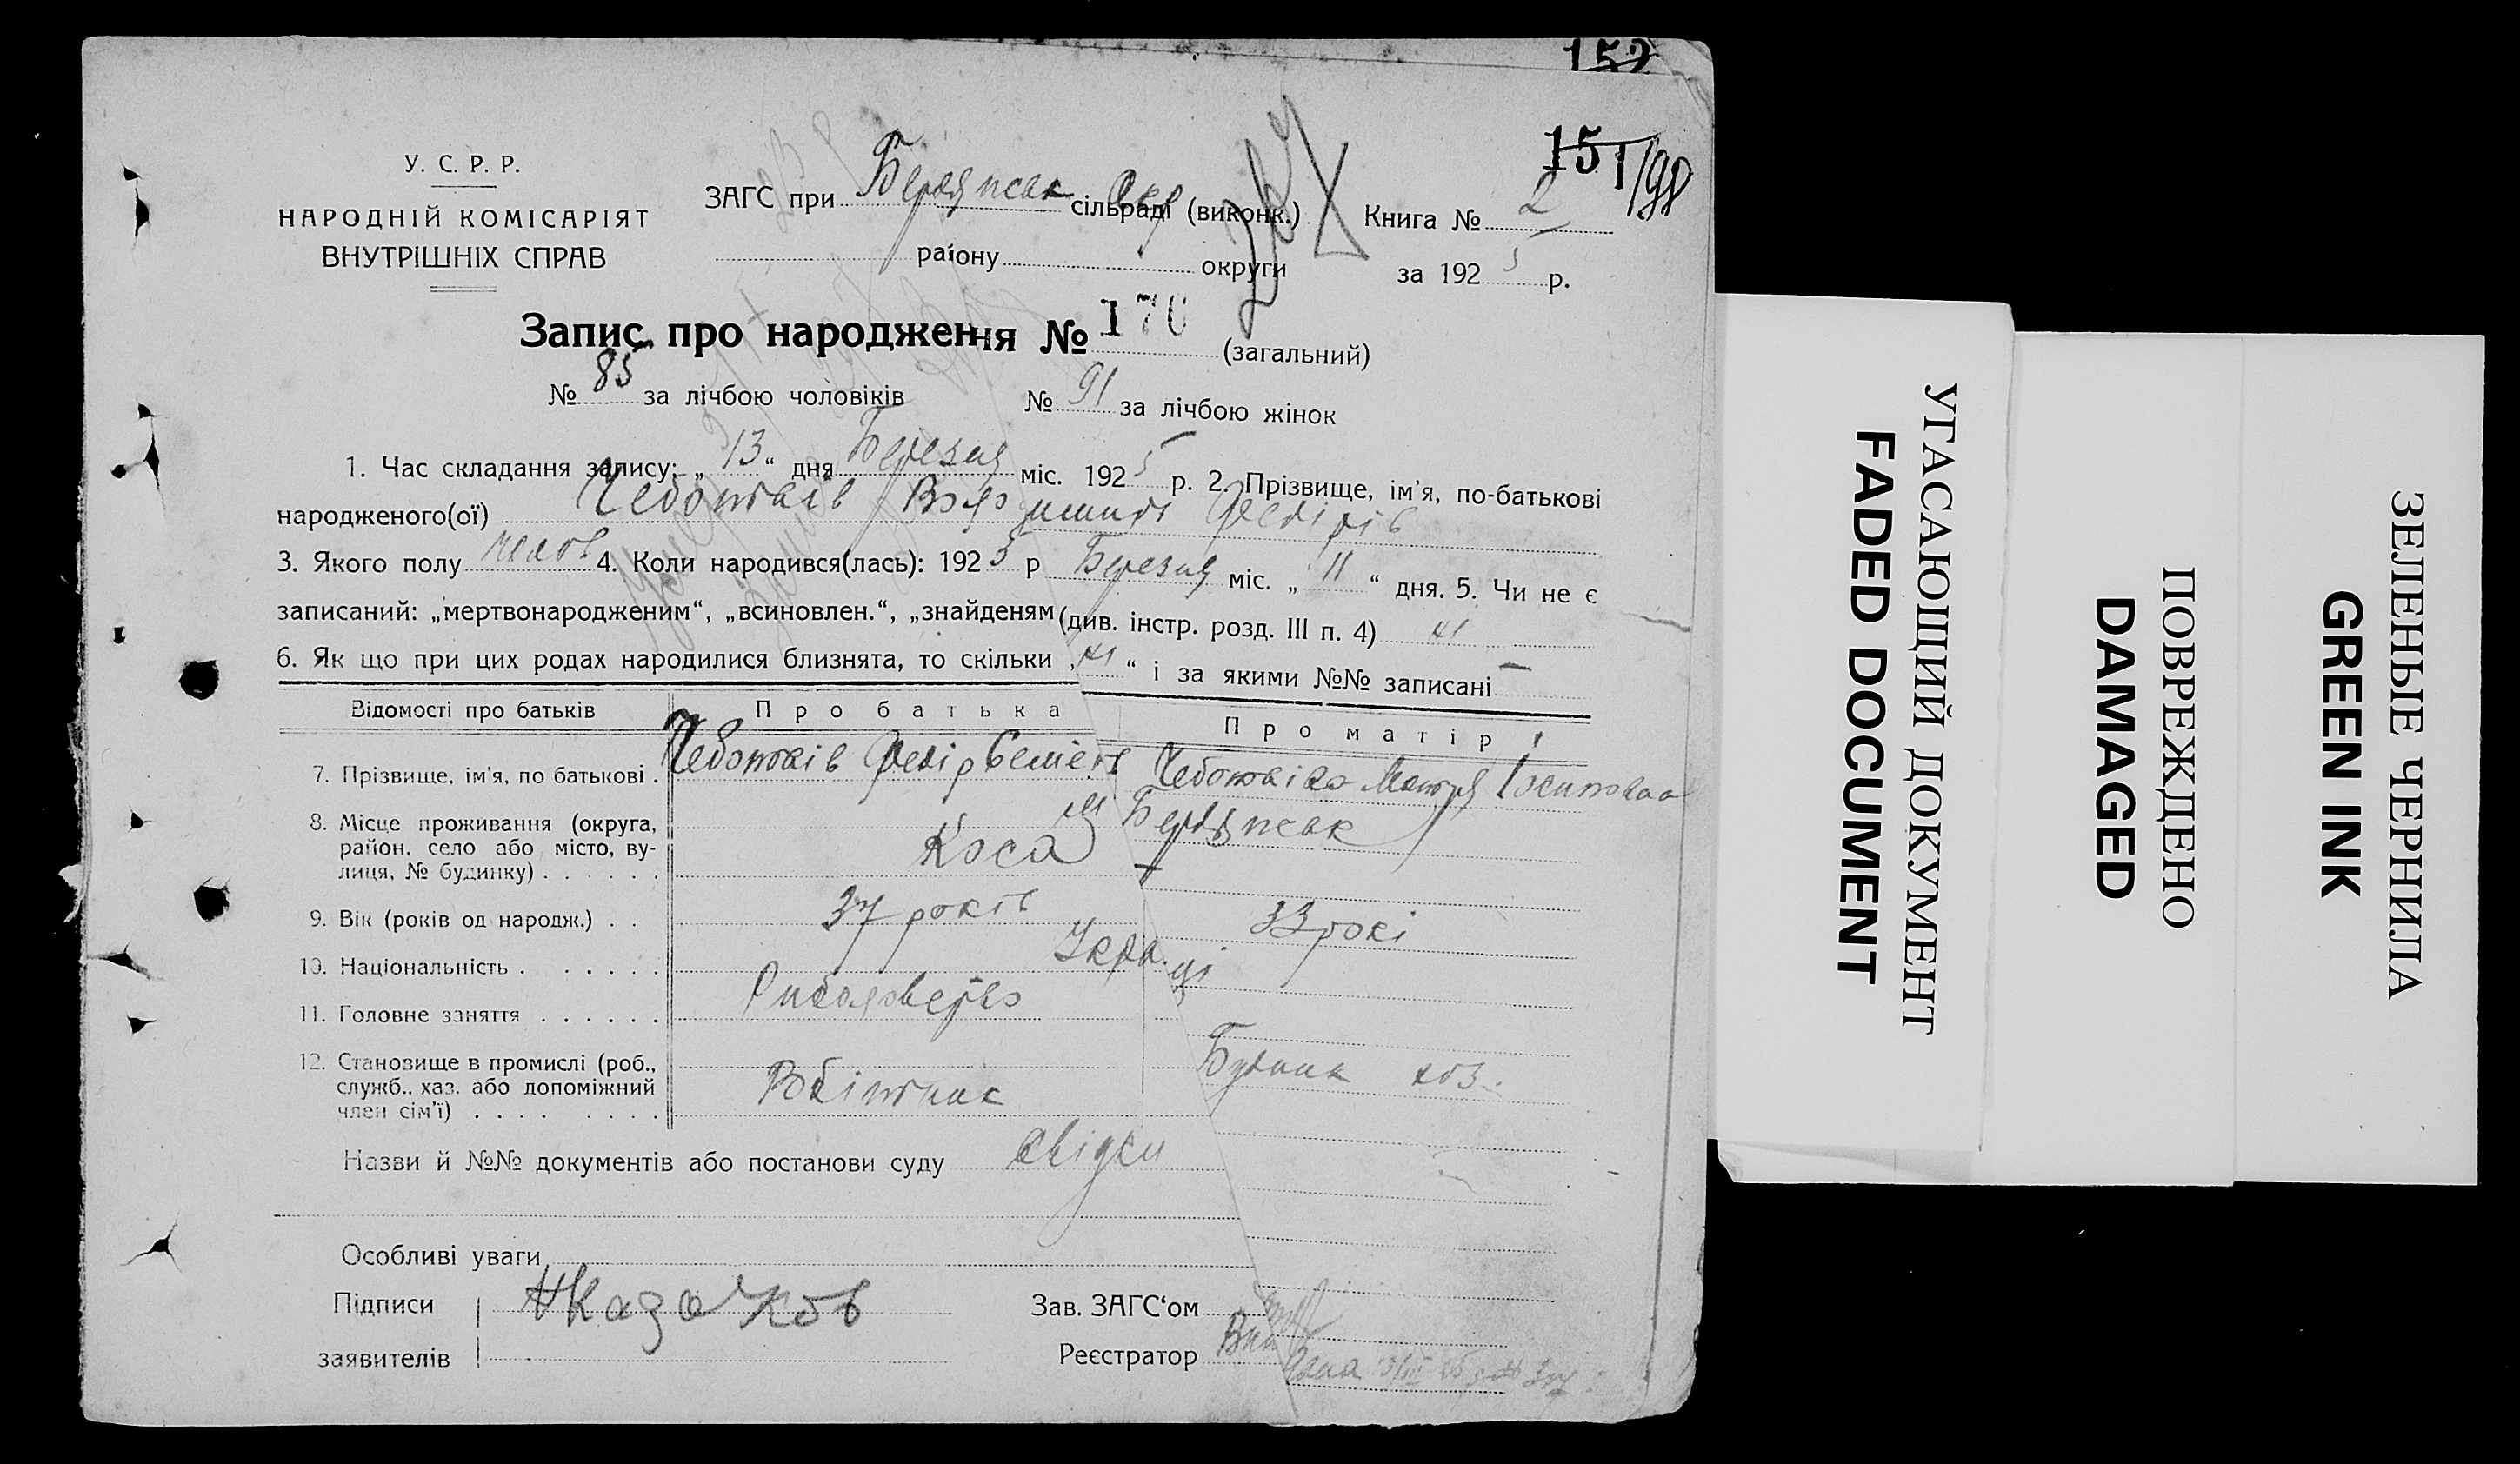 152
151/98
У. С. Р. Р.
НАРОДНІЙ КОМІСАРІЯТ
ВНУТРІШНІХ СПРАВ
ЗАГС при Бердянськ Окр сільраді (виконк.) Книга № 2
району округи за 1925 р.
Запис про народження № 176 (загальний)
№ 85 за лічбою чоловіків № 91 за лічбою жінок
1. Час складання запису: „ 13 “ дня Березня міс. 1925 р. 2. Прізвище, ім’я, по-батькові
народженого(ої) Чеботаїв Володимир Федірів
3. Якого полу чолов 4. Коли народився(лась): 1925 р Березня міс. „ 11 “ дня. 5. Чи не є
записаний: „мертвонародженим“, „всиновлен.“, „знайденям (див. інстр. розд. III п. 4) ні
6. Як що при цих родах народилися близнята, то скільки „ ні “ і за якими №№ записані –
Відомості про батьків Про батька Про матір
7. Прізвище, ім’я, по батькові . Чеботаїв Федір Семієн Чеботаїва Мотря
8. Місце проживання (округа, м Бердянськ
район, село або місто, ву-
лиця, № будинку) . . . . . . Коса
9. Вік (років од народж.) . . 37 років 33 рокі
10. Національність . . . . . . Украіці
11. Головне заняття . . . . . . Риболовство
12. Становище в промислі (роб.,
служб., хаз. або допоміжний Робітник
член сім’ї) . . . . . . . . .
Назви й №№ документів або постанови суду свідки
Особливі уваги
Підписи Казачков Зав. ЗАГС‘ом
заявителів Реєстратор
УГАСАЮЩИЙ ДОКУМЕНТ
FADED DOCUMENT
ПОВРЕЖДЕНО
DAMAGED
ЗЕЛЕНЫЕ ЧЕРНИЛА
GREEN INK